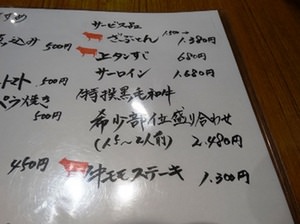 サービス品
ざぶとん 1,380円
上タンすじ 680円
サーロイン 1,680円
特撰黒毛和牛
希少部位盛り合わせ
(1.5〜2人前) 2,480円
牛モモステーキ 1,300円
込み 500円
トマト 500円
焼き
500円
450円